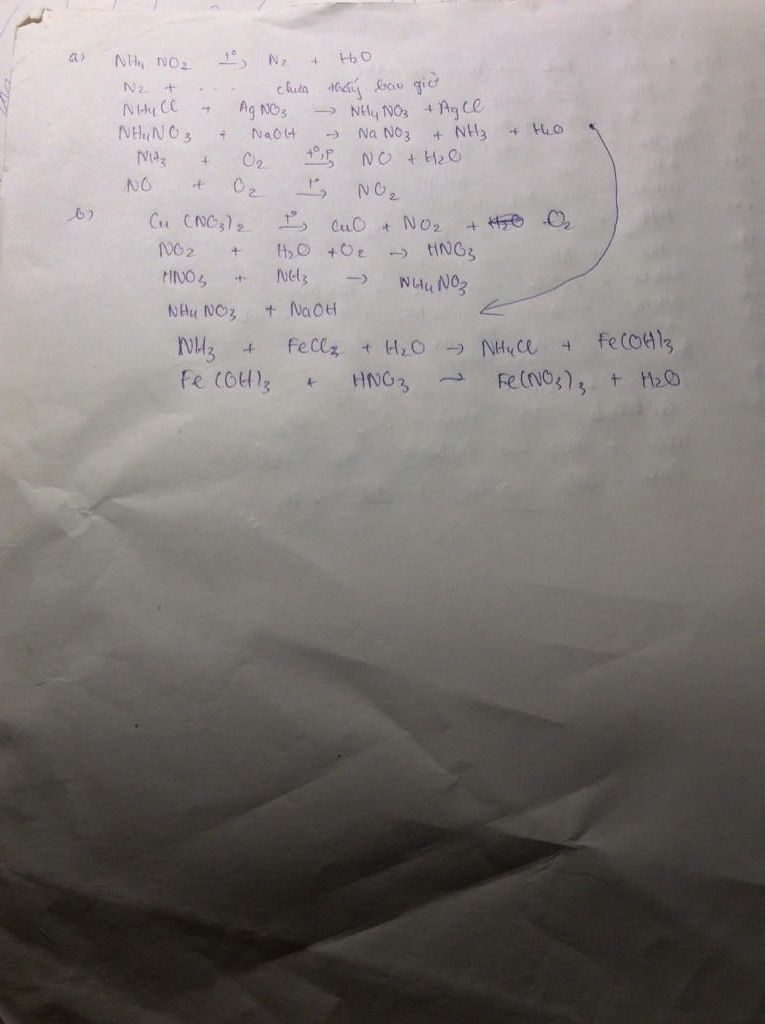 a) NH4 NO2 t°→ N2 + H2O
N2 + .... chưa thấy bao giờ
NH4Cl + AgNO3 → NH4NO3 + AgCl
NH4NO3 + NaOH → NaNO3 + NH3 + H2O
NH3 + O2 t°,P→ NO + H2O
NO + O2 t°→ NO2
b) Cu (NO3)2 t°→ CuO + NO2 + H2O O2
NO2 + H2O + O2 → HNO3
HNO3 + NH3 → NH4NO3
NH4NO3 + NaOH
NH3 + FeCl3 + H2O → NH4Cl + Fe(OH)3
Fe (OH)3 + HNO3 → Fe(NO3)3 + H2O